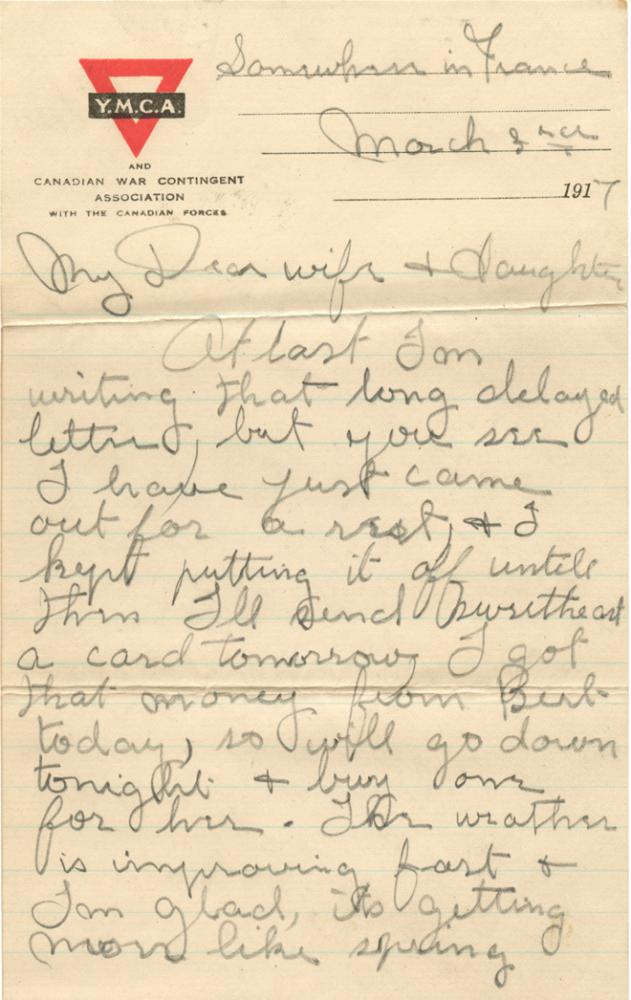 Somewhere in France
Y.M.C.A.
March 3rd
AND
CANADIAN WAR CONTINGENT
ASSOCIATION
WITH THE CANADIAN FORCES
1917
My Dear wife + Daughter
At last Im
writing that long delayed
letter, but you see
I have just came
out for a rest, + I
kept putting it off untill
then I'll send Sweetheart
a card tomorrow, I got
that money from Bert
today, so will go down
tonight + buy one
for her. The weather
is improving fast +
Im glad, its getting
more like spring